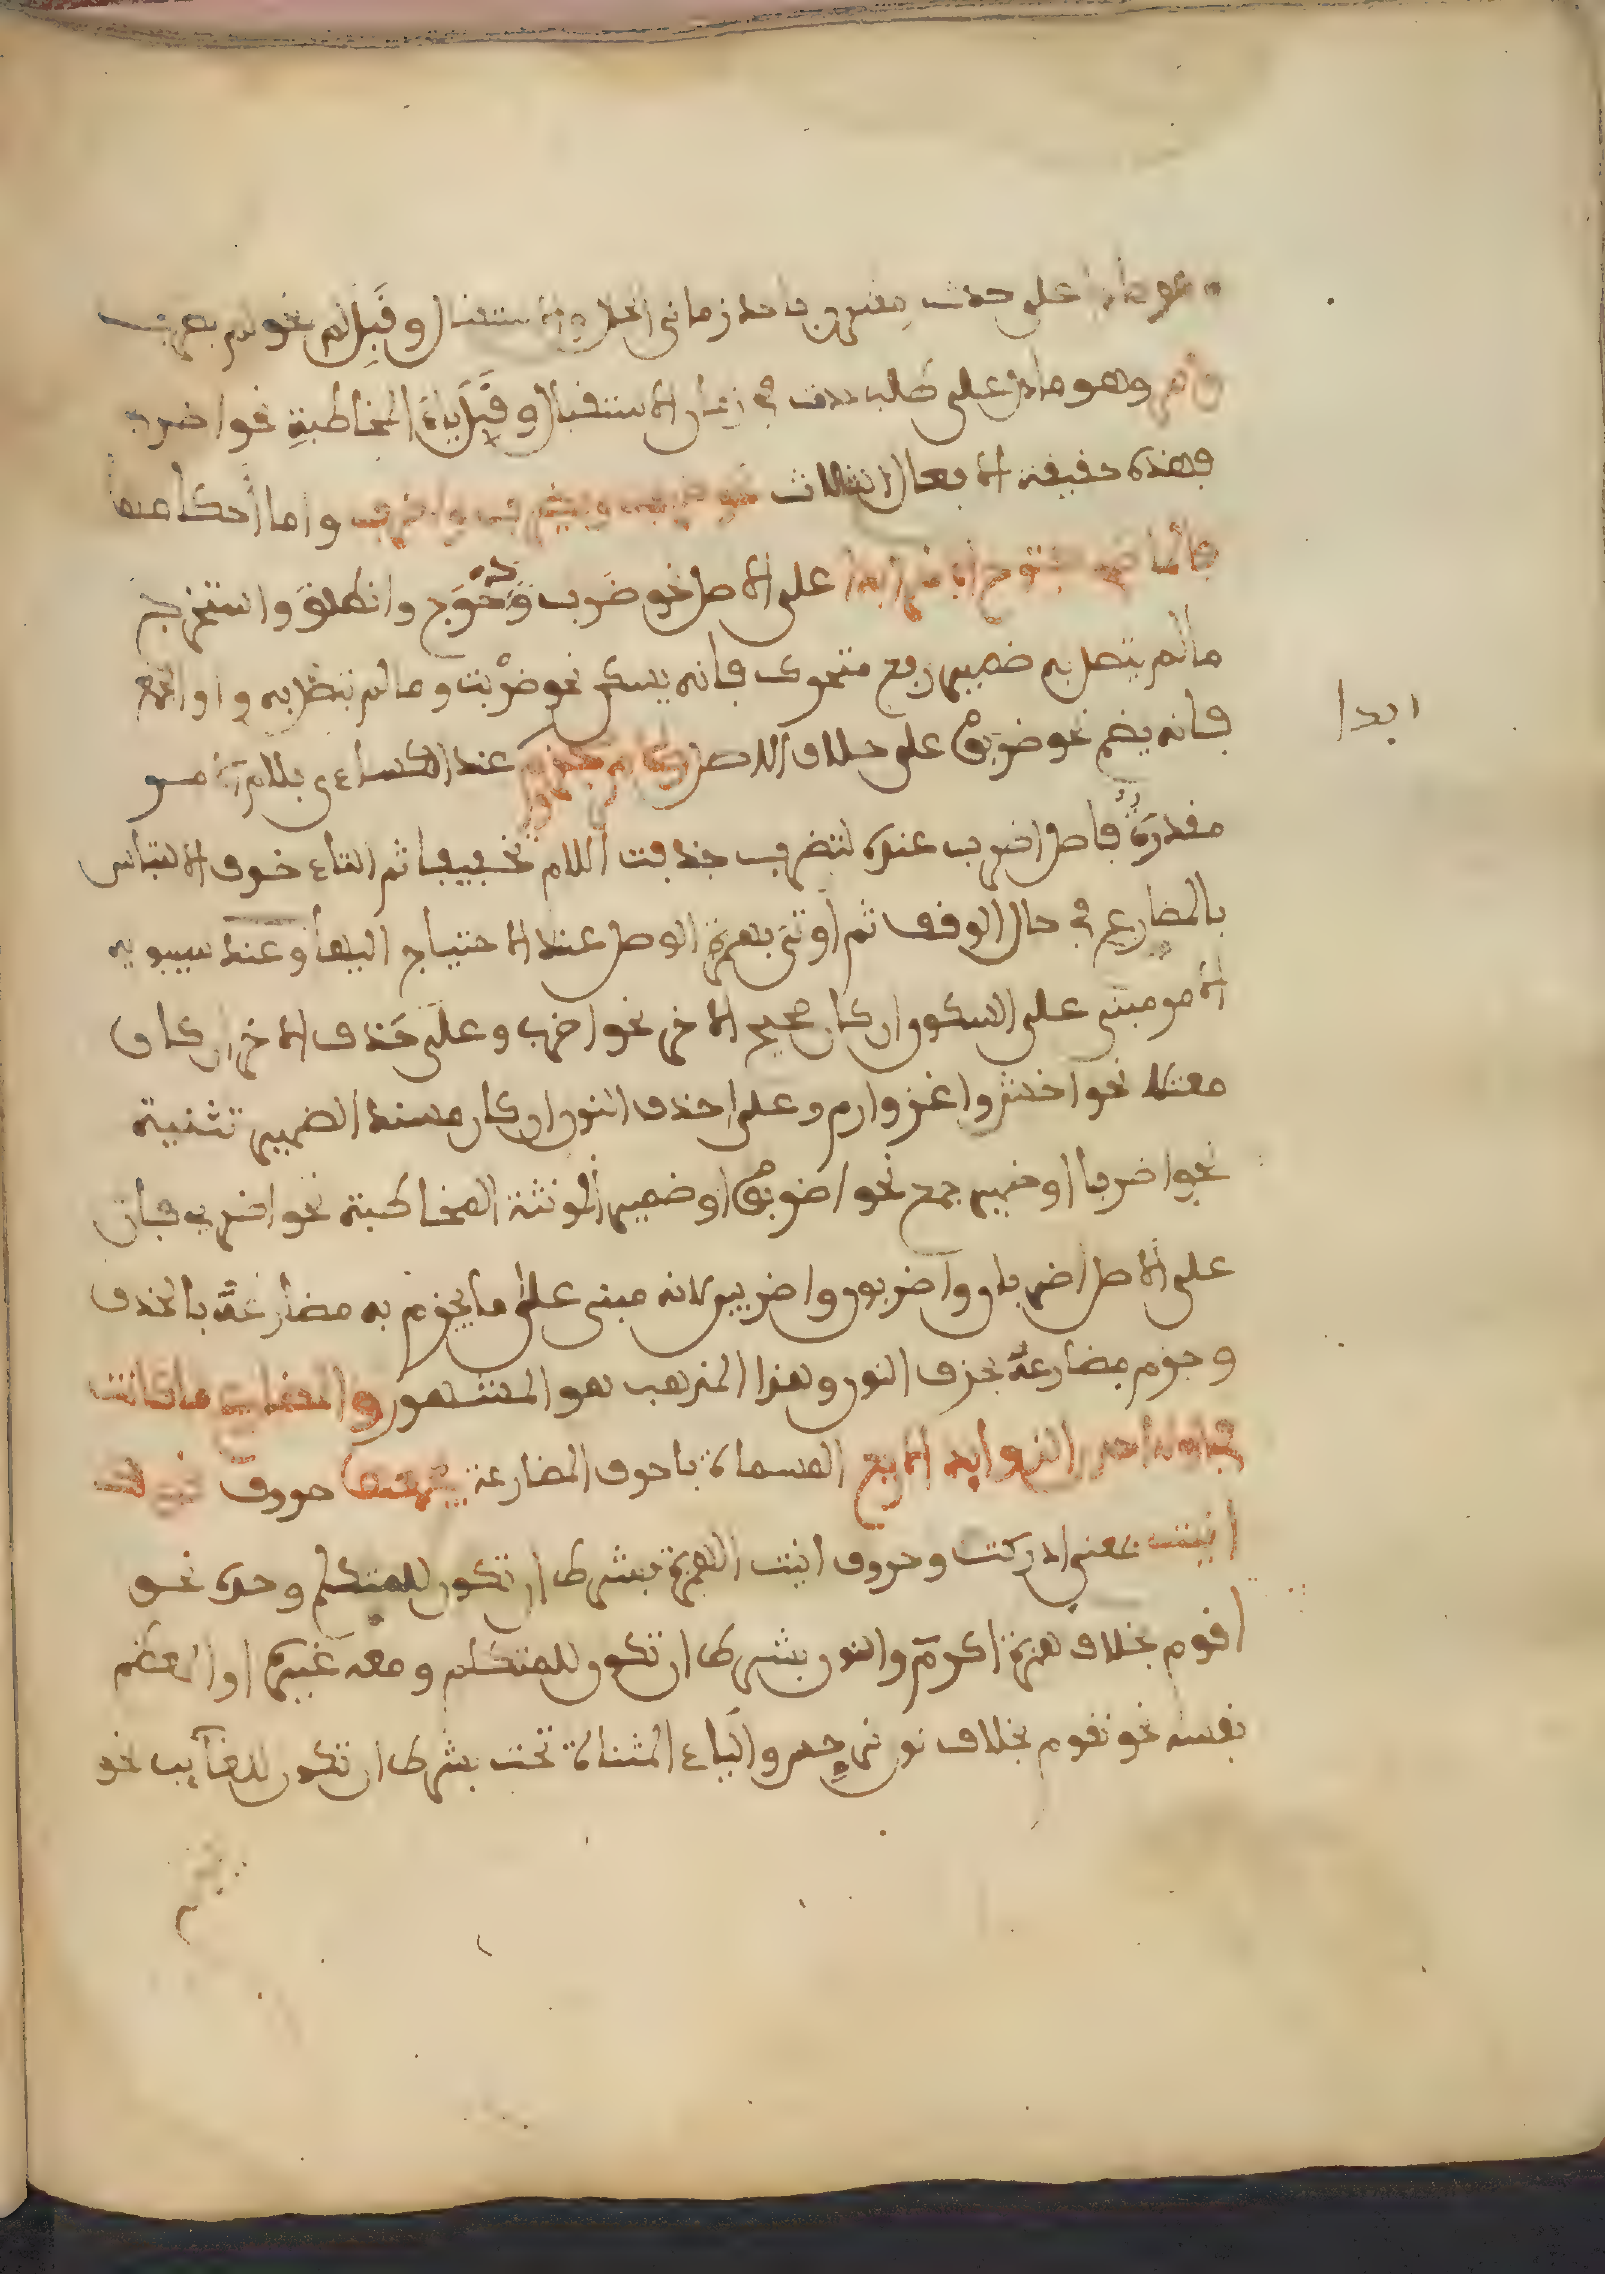 وهو ما دل على حدث مقترن باحد زماني الحال والاستقبال وقَبِل لم نحو لم يضرب
وامر وهو ما دل على طلب حدث في زمان الاستقبال وقَبِل ياءَ المخاطبةِ نحو اضرب
فهذه حقيقة الافعال الثلاث نحو ضرب ويضرب واضرب واما احكامها
فالماضي مفتوح الاخر ابدا على الاصل نحو ضرَب ودحرَج وانطلقَ واستخرج
ما لم يتصل به ضمير رفع متحرك فانه يسكن نحو ضربْت وما لم يتصل به واو الجمع
فانه يضم نحو ضربُوا على خلاف الاصل والامر مجزوم عند الكساءي بلام الامر
مقدرة فاصل اضرب عنده لتضرب حذفت اللام تخفيفا ثم التاء خوف الالتباس
بالمضارع في حال الوقف ثم اوتي بهمزة الوصل عند الاحتياج اليها وعند سيبويه
الامر مبني على السكون ان كان صحيح الاخر نحو اضرب وعلى حَذف الاخر ان كان
معتلا نحو اخش واغز وارم وعلى حذف النون ان كان مسندا لضمير تثنية
نحو اضربا او ضمير جمع نحو اضربُوا او ضمير المونثة المخاطبة نحو اضربي فان
على الاصل اضربان واضربون واضربين لانه مبني على ما يجزم به مضارعه بالحذف
وجزم مضارعه بحذف النون وهذا المذهب هو المشهور والمضارع ما كانت
في اوله احدى الزوايد الاربع المسماة باحرف المضارعة يجمعها حروف قولك
انيت بمعنى ادركت وحروف انيت الهمزة بشرط ان تكون للمتكلم وحده نحو
اقوم بخلاف همزة اكرم والنون بشرط ان تكون للمتكلم ومعه غيره او المعظم
نفسه نحو نقوم بخلاف نون نرجس والياء المثناة تحت بشرط ان تكون للغآيب نحو
ابدا